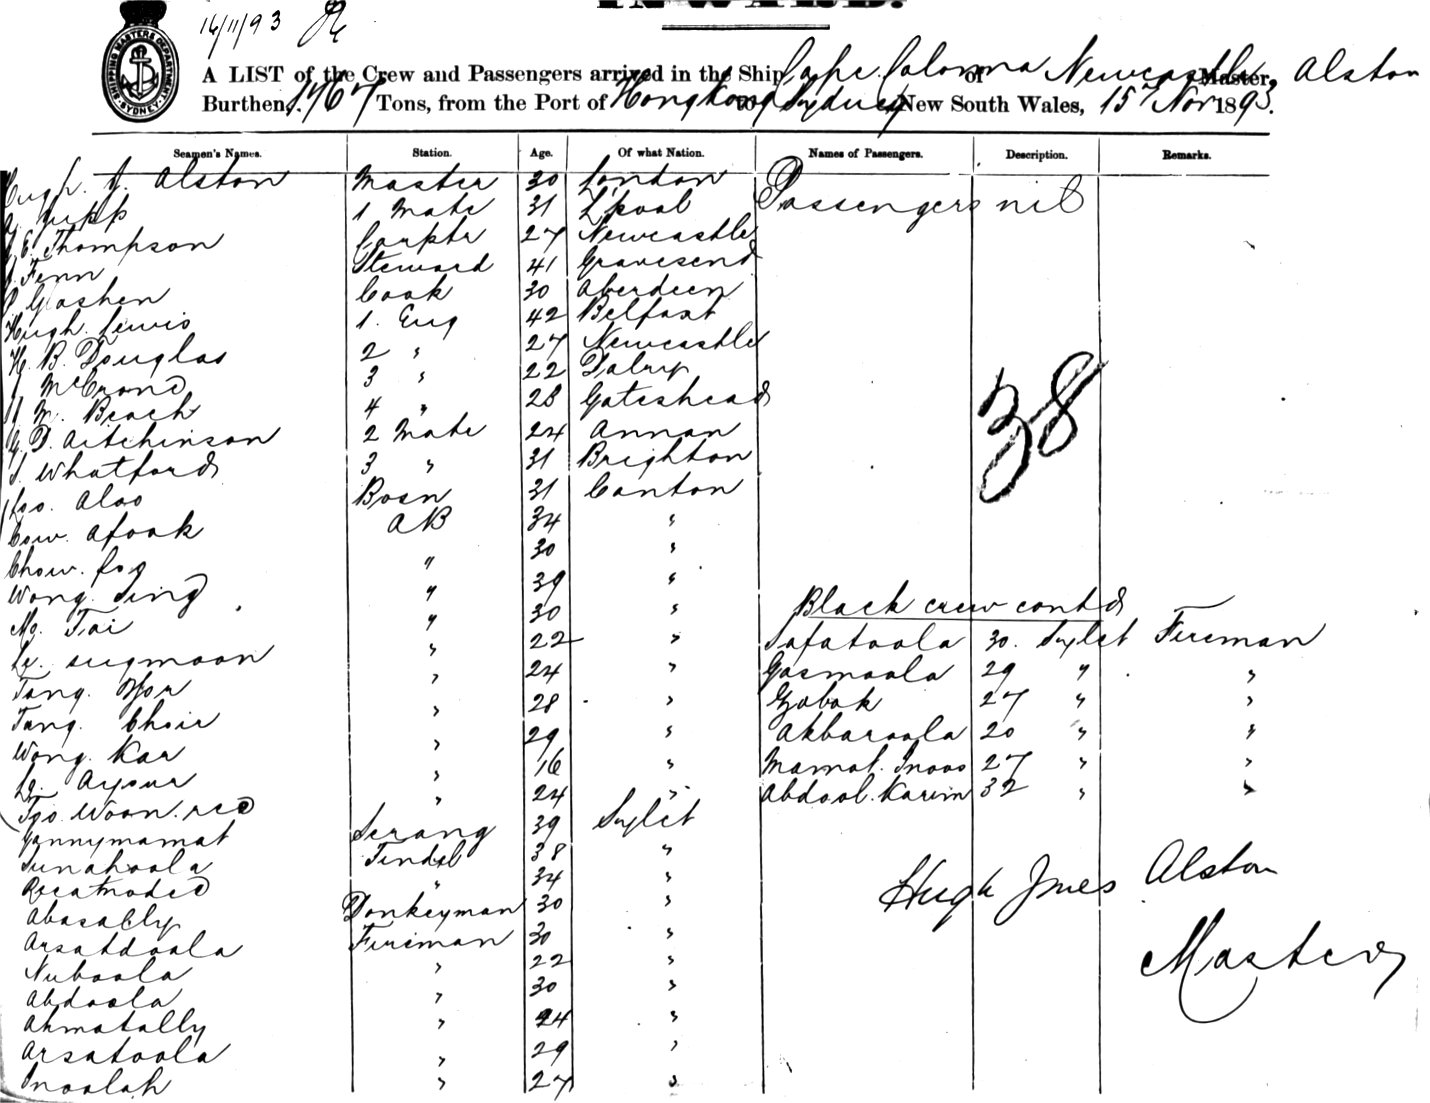 INWARD.
16/11/93
SHIPPING MASTERS DEPARTMENT SYDNEY
A LIST of the Crew and Passengers arrived in the Ship Cape Colonna of Newcastle Master, Alston
Burthen 1767 Tons, from the Port of Hongkong to Sydney New South Wales, 15th Nov 1893.
Seamen's Names. Station. Age. Of what Nation. Names of Passengers. Description. Remarks.
Hugh J. Alston Master 30 London Passengers nil
Jupp 1 Mate 31 L'pool
E. Thompson Carptr 27 Newcastle
Fenn Steward 41 Gravesend
Goshen Cook 30 Aberdeen
Hugh Lewis 1. Eng 42 Belfast
H. B. Douglas 2 " 27 Newcastle
McCrone 3 " 22 Dalry
W. Beach 4 " 28 Gateshead
D. Aitchinson 2 Mate 24 Annan
Whatford 3 " 31 Brighton
38
Aloo Bosn 31 Canton
Cow. Afook AB 34 "
Chow. Foo " 30 "
Wong Sing " 39 "
Mo. Tai " 30 "
Black crew contd
Sugmoon " 22 "
Tong. " 24 "
Tung. Choir " 28 "
Wong. Kar " 29 "
Ayour " 16 "
Woon. " 24 "
Safatoola 30. Sylet Fireman
Gosmoola 29 " "
Gobok 27 " "
Akbaroola 20 " "
Mamot. Inoos 27 " "
Abdool. Karim 32 " "
Gonnymamat Serang 39 Sylet
Sunahoola Tindal 38 "
" 34 "
Abasally Donkeyman 30 "
Arsatdoola Fireman 30 "
Nuboola " 22 "
Abdoola " 30 "
Ahmatally " 24 "
Arsatoola " 29 "
Inoolah " 27 "
Hugh Jnes Alston
Master